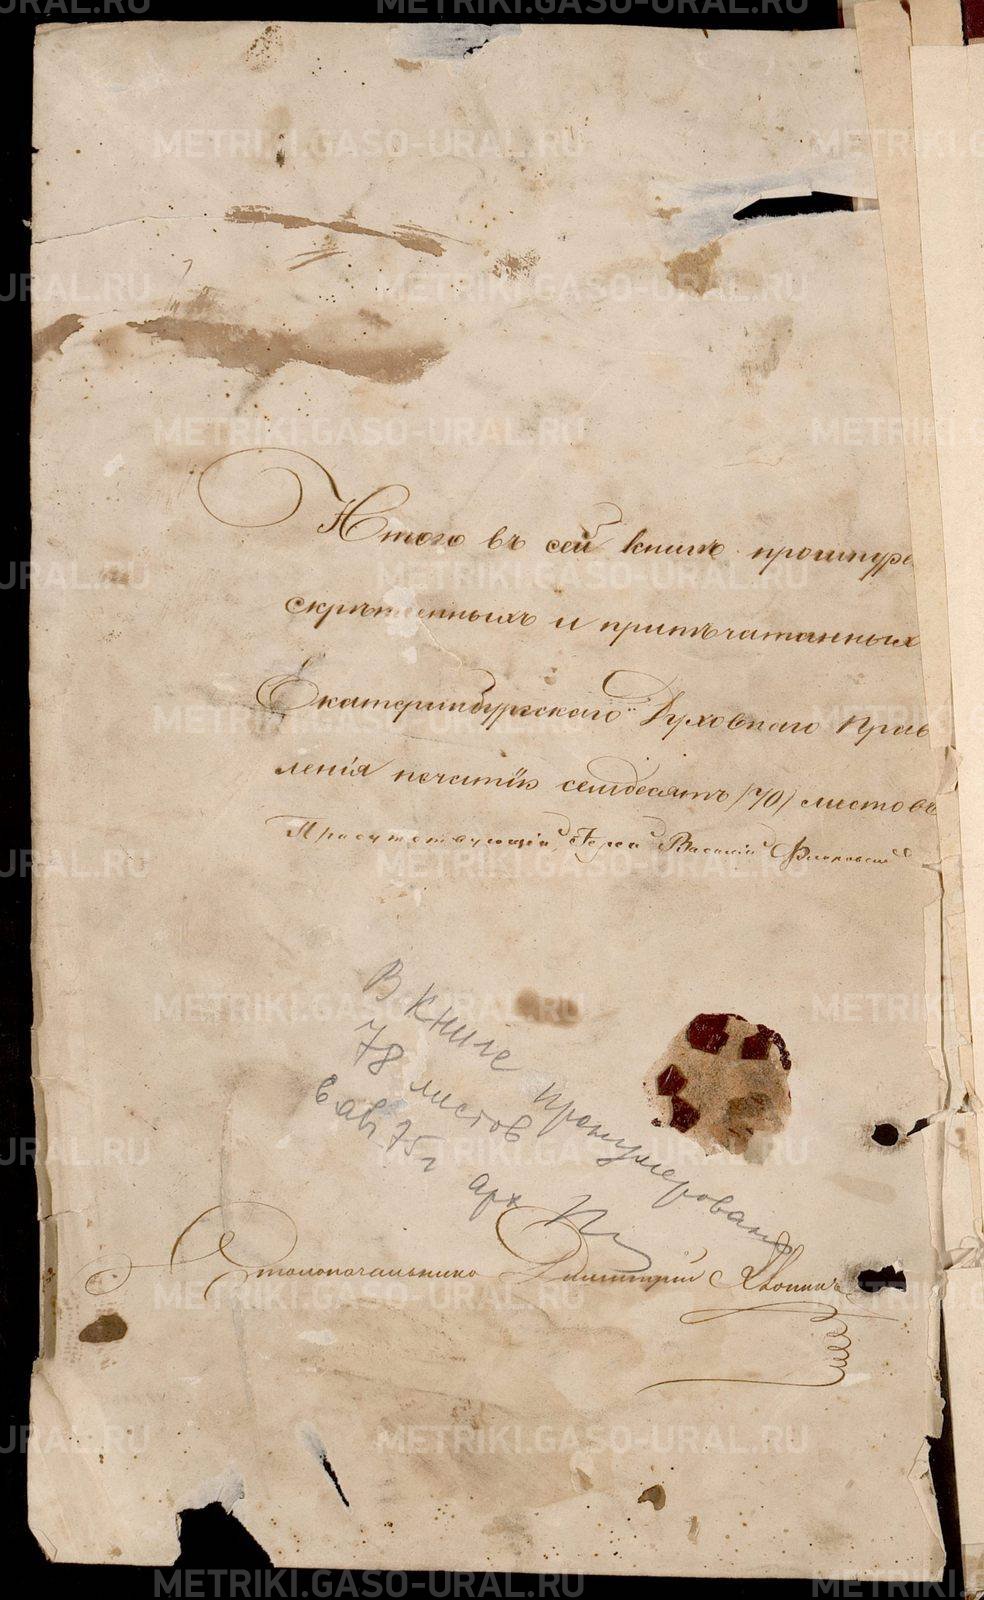 Итого въ сей книгѣ прошнуро
скрѣпленныхъ и припечатанныхъ
Екатеринбургскаго Духовнаго Прав
ленія печатью семдесятъ (70) листовъ
Присутствующій Іерей Василій
В книге пронумеровано
78 листов
6 авг 75г арх
Столоначальникъ Димитрій
METRIKI.GASO-URAL.RU